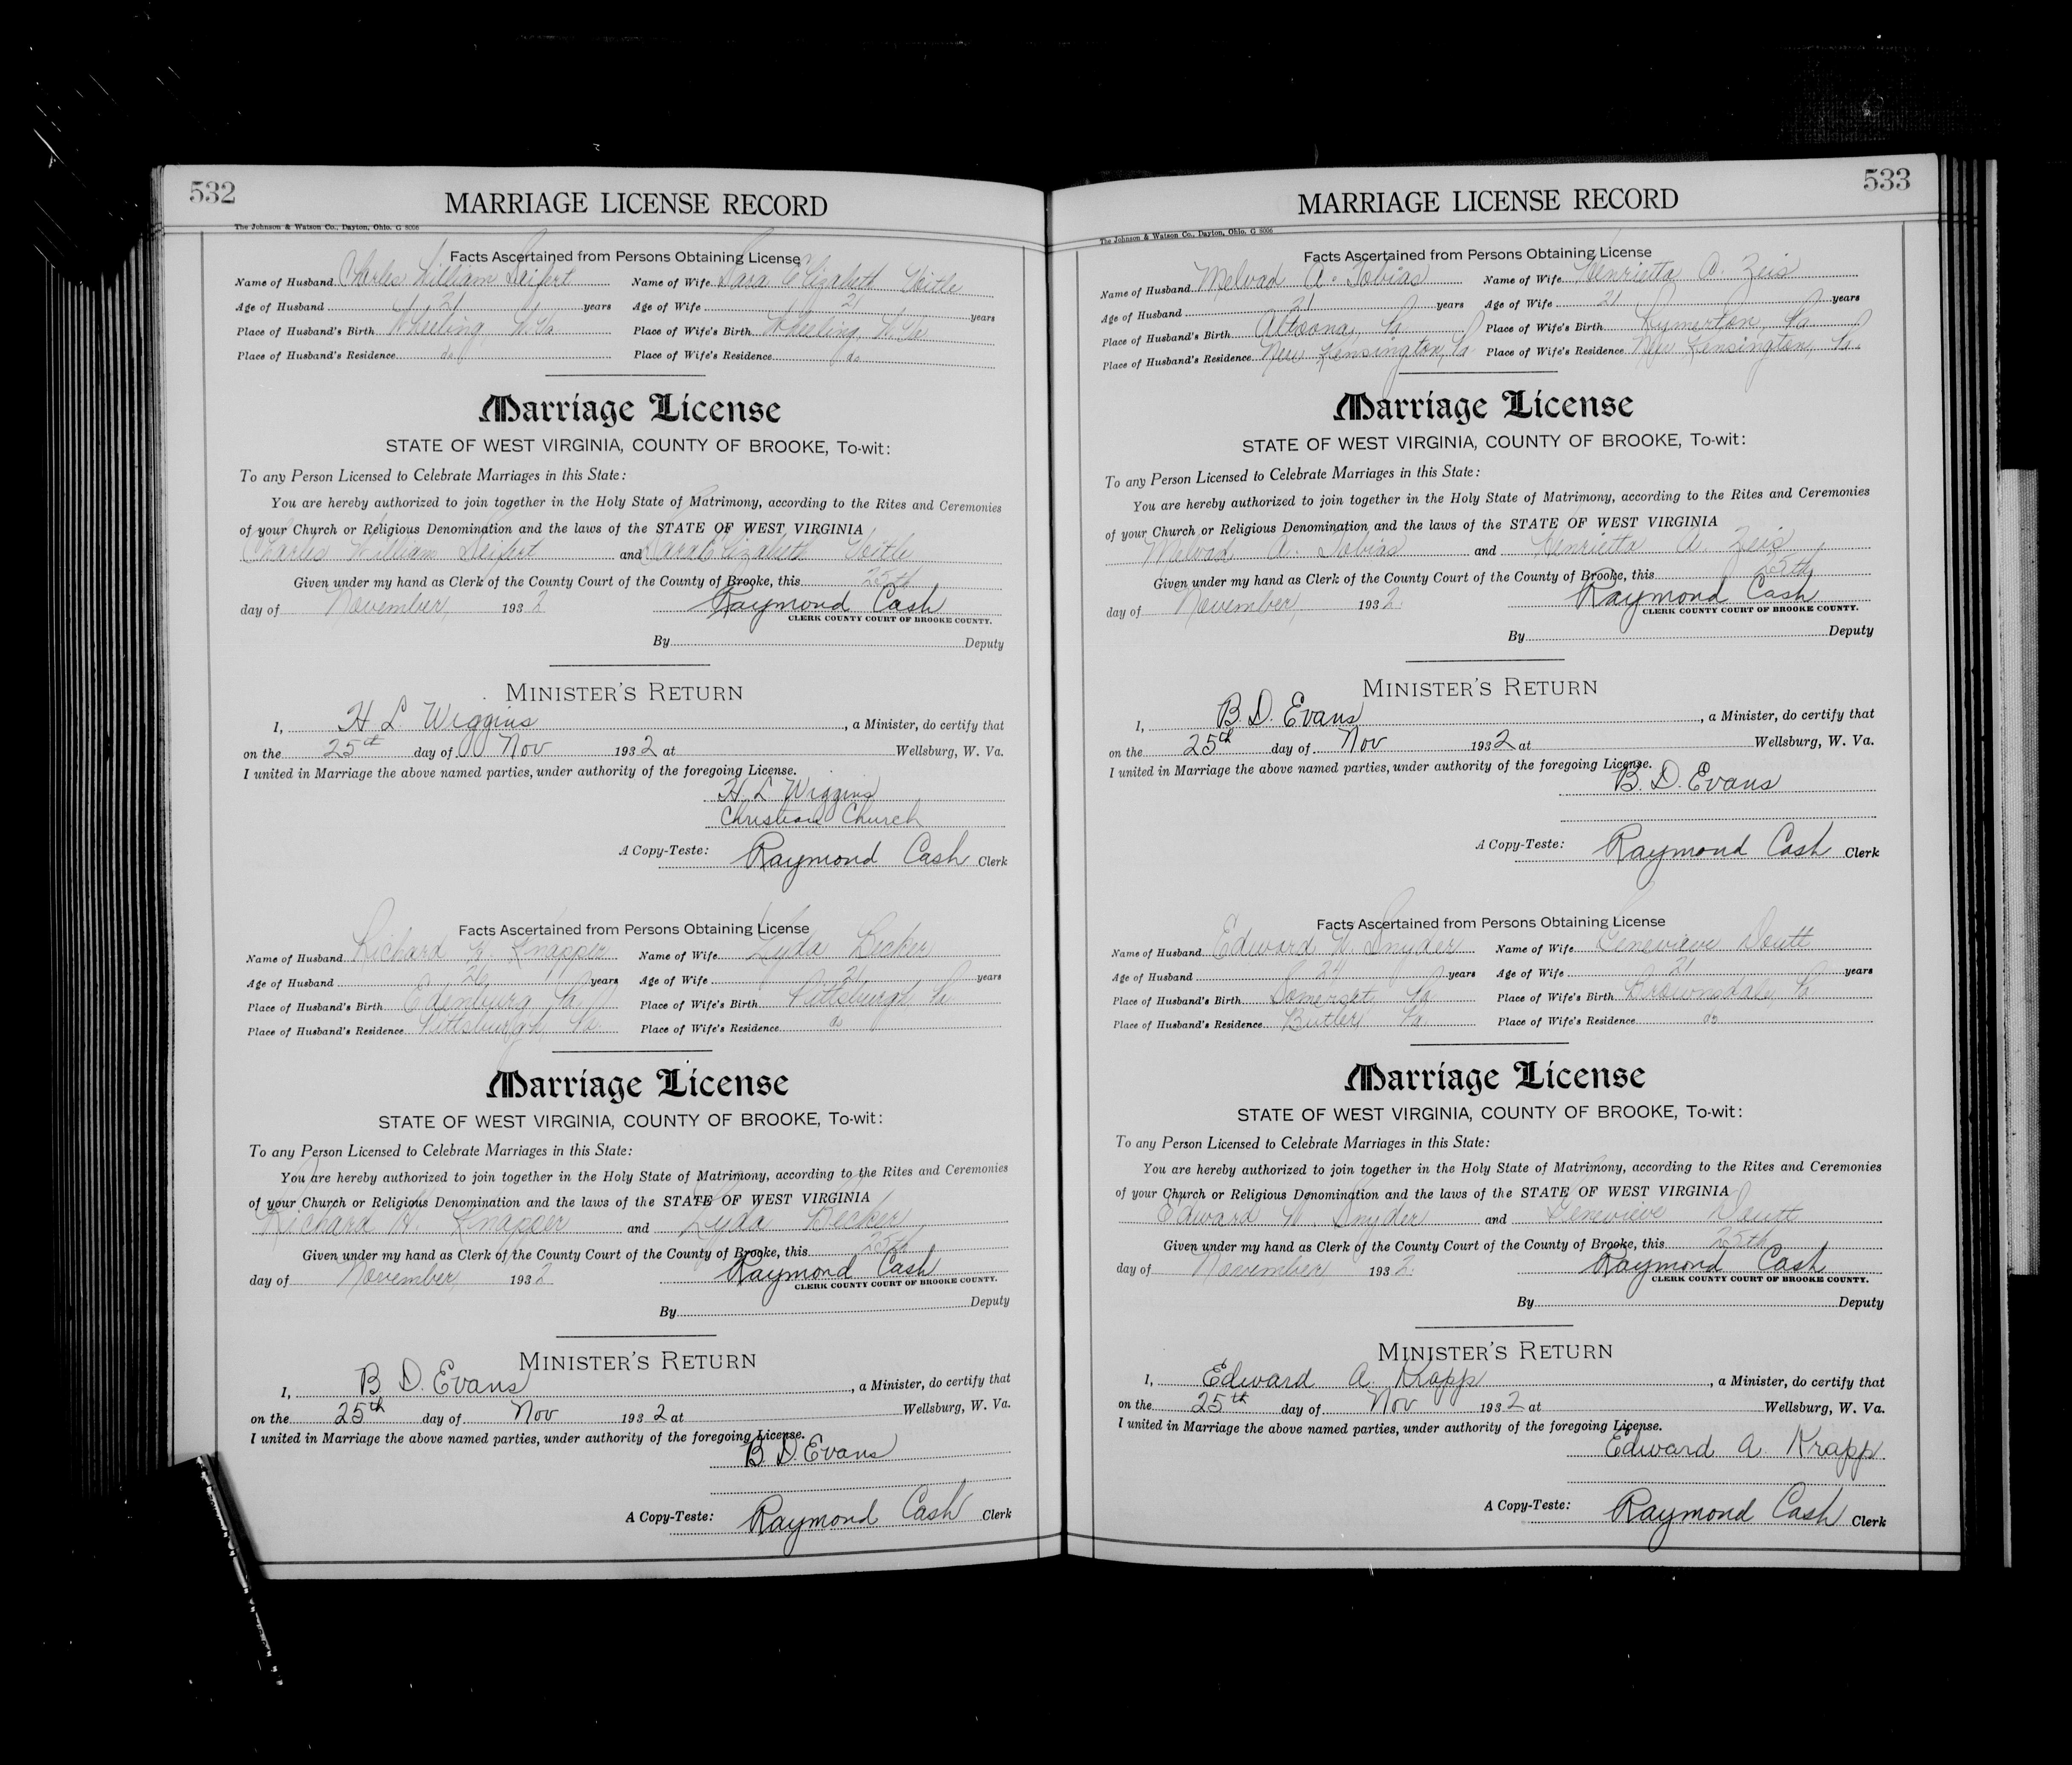 532
MARRIAGE LICENSE RECORD
The Johnson & Watson Co., Dayton, Ohio. G 8006
Facts Ascertained from Persons Obtaining License
Name of Husband Charles William Seifert Name of Wife Sara Elizabeth
Age of Husband 21 years Age of Wife 21 years
Place of Husband's Birth Wheeling, W. Va. Place of Wife's Birth Wheeling, W. Va
Place of Husband's Residence do Place of Wife's Residence do
Marriage License
STATE OF WEST VIRGINIA, COUNTY OF BROOKE, To-wit:
To any Person Licensed to Celebrate Marriages in this State:
You are hereby authorized to join together in the Holy State of Matrimony, according to the Rites and Ceremonies
of your Church or Religious Denomination and the laws of the STATE OF WEST VIRGINIA
Charles William Seifert and Sara Elizabeth
Given under my hand as Clerk of the County Court of the County of Brooke, this 25th
day of November, 1932 Raymond Cash
CLERK COUNTY COURT OF BROOKE COUNTY.
By Deputy
MINISTER'S RETURN
I, H. L. Wiggins, a Minister, do certify that
on the 25th day of Nov 1932 at Wellsburg, W. Va.
I united in Marriage the above named parties, under authority of the foregoing License.
H. L. Wiggins
Christian Church
A Copy-Teste: Raymond Cash Clerk
Facts Ascertained from Persons Obtaining License
Name of Husband Richard H. Knapper Name of Wife Lyda Becker
Age of Husband 26 years Age of Wife 21 years
Place of Husband's Birth Edenburg Pa. Place of Wife's Birth Pittsburgh, Pa
Place of Husband's Residence Pittsburgh, Pa. Place of Wife's Residence do
Marriage License
STATE OF WEST VIRGINIA, COUNTY OF BROOKE, To-wit:
To any Person Licensed to Celebrate Marriages in this State:
You are hereby authorized to join together in the Holy State of Matrimony, according to the Rites and Ceremonies
of your Church or Religious Denomination and the laws of the STATE OF WEST VIRGINIA
Richard H. Knapper and Lyda Becker
Given under my hand as Clerk of the County Court of the County of Brooke, this 25th
day of November, 1932 Raymond Cash
CLERK COUNTY COURT OF BROOKE COUNTY.
By Deputy
MINISTER'S RETURN
I, B. D. Evans, a Minister, do certify that
on the 25th day of Nov 1932 at Wellsburg, W. Va.
I united in Marriage the above named parties, under authority of the foregoing License.
B. D. Evans
A Copy-Teste: Raymond Cash Clerk
533
MARRIAGE LICENSE RECORD
The Johnson & Watson Co., Dayton, Ohio. G 8006
Facts Ascertained from Persons Obtaining License
Name of Husband Melvad A. Tobias Name of Wife Henrietta A. Zeis
Age of Husband 21 years Age of Wife 21 years
Place of Husband's Birth Altoona, Pa Place of Wife's Birth Pa
Place of Husband's Residence New Kensington, Pa Place of Wife's Residence New Kensington, Pa.
Marriage License
STATE OF WEST VIRGINIA, COUNTY OF BROOKE, To-wit:
To any Person Licensed to Celebrate Marriages in this State:
You are hereby authorized to join together in the Holy State of Matrimony, according to the Rites and Ceremonies
of your Church or Religious Denomination and the laws of the STATE OF WEST VIRGINIA
Melvad A. Tobias and Henrietta A. Zeis
Given under my hand as Clerk of the County Court of the County of Brooke, this 25th
day of November, 1932. Raymond Cash
CLERK COUNTY COURT OF BROOKE COUNTY.
By Deputy
MINISTER'S RETURN
I, B. D. Evans, a Minister, do certify that
on the 25th day of Nov 1932 at Wellsburg, W. Va.
I united in Marriage the above named parties, under authority of the foregoing License.
B. D. Evans
A Copy-Teste: Raymond Cash Clerk
Facts Ascertained from Persons Obtaining License
Name of Husband Edward W. Snyder Name of Wife Genevieve Doutt
Age of Husband 24 years Age of Wife 21 years
Place of Husband's Birth Somerset Pa Place of Wife's Birth Brownsdale, Pa
Place of Husband's Residence Butler Pa Place of Wife's Residence do
Marriage License
STATE OF WEST VIRGINIA, COUNTY OF BROOKE, To-wit:
To any Person Licensed to Celebrate Marriages in this State:
You are hereby authorized to join together in the Holy State of Matrimony, according to the Rites and Ceremonies
of your Church or Religious Denomination and the laws of the STATE OF WEST VIRGINIA
Edward W. Snyder and Genevieve Doutt
Given under my hand as Clerk of the County Court of the County of Brooke, this 25th
day of November 1932. Raymond Cash
CLERK COUNTY COURT OF BROOKE COUNTY.
By Deputy
MINISTER'S RETURN
I, Edward A. Krapp, a Minister, do certify that
on the 25th day of Nov 1932 at Wellsburg, W. Va.
I united in Marriage the above named parties, under authority of the foregoing License.
Edward A. Krapp
A Copy-Teste: Raymond Cash Clerk